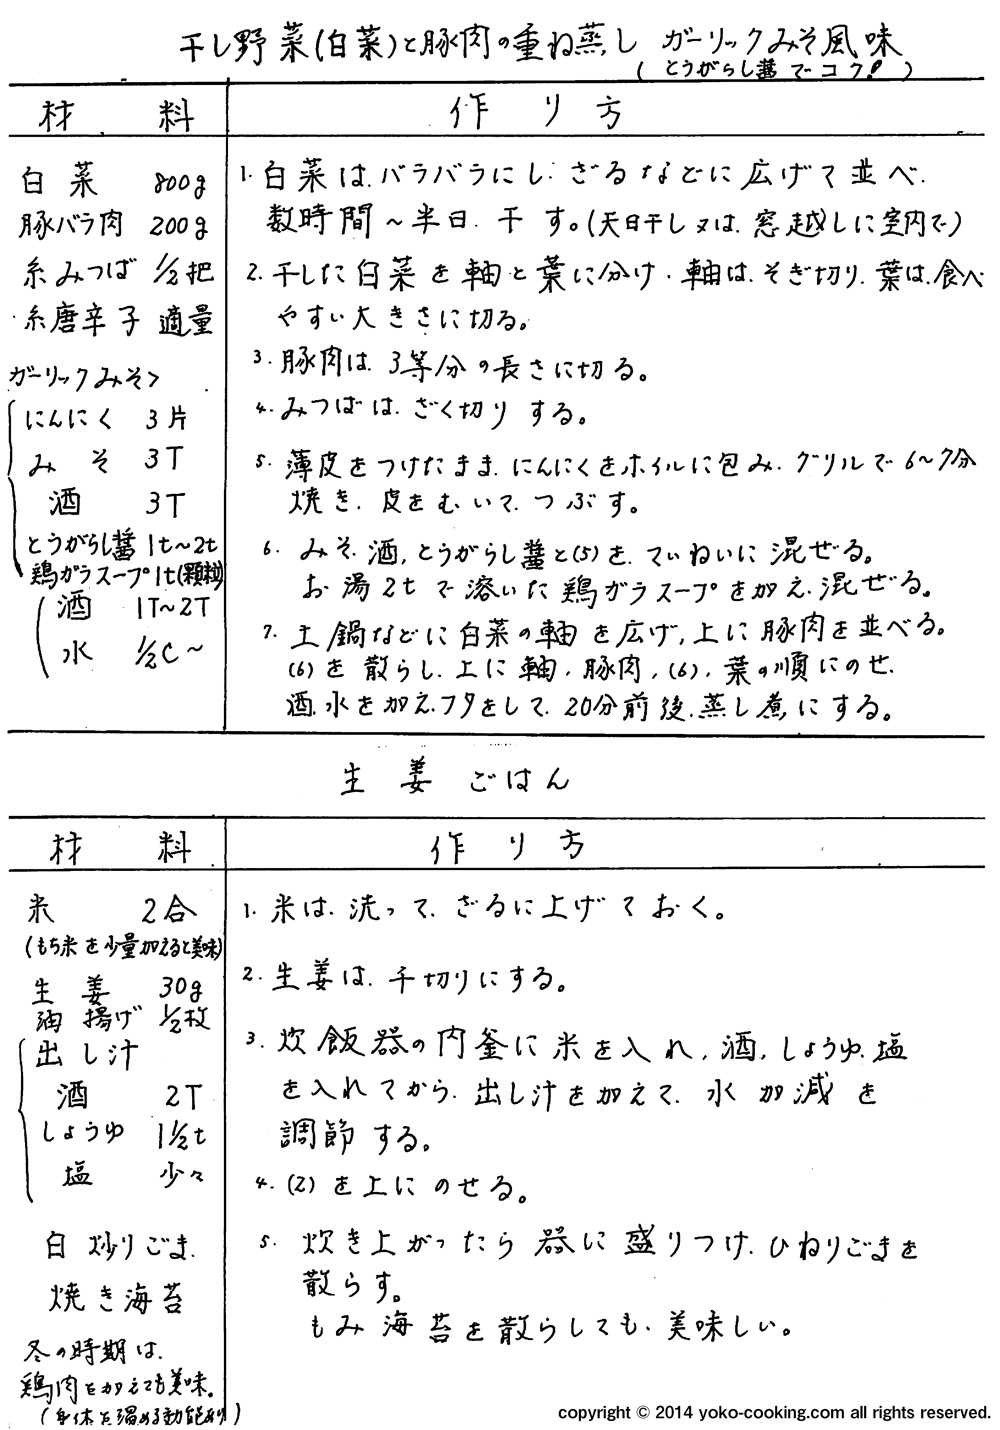 干し野菜(白菜)と豚肉の重ね蒸し ガーリックみそ風味
(とうがらし醤でコク!)
材料 作り方
白菜 800g
豚バラ肉 200g
糸みつば 1/2把
糸唐辛子 適量
ガーリックみそ>
にんにく 3片
みそ 3T
酒 3T
とうがらし醤 1t~2t
鶏ガラスープ 1t(顆粒)
酒 1T~2T
水 1/2C~
1. 白菜は、バラバラにし、ざるなどに広げて並べ、
数時間~半日、干す。(天日干し又は、窓越しに室内で)
2. 干した白菜を軸と葉に分け、軸は、そぎ切り、葉は、食べ
やすい大きさに切る。
3. 豚肉は、3等分の長さに切る。
4. みつばは、ざく切りする。
5. 薄皮をつけたまま、にんにくをホイルに包み、グリルで6~7分
焼き、皮をむいて、つぶす。
6. みそ、酒、とうがらし醤と(5)を、ていねいに混ぜる。
お湯2tで溶いた鶏ガラスープを加え、混ぜる。
7. 土鍋などに白菜の軸を広げ、上に豚肉を並べる。
(6)を散らし、上に軸、豚肉、(6)、葉の順にのせ、
酒、水を加え、フタをして、20分前後、蒸し煮にする。
生姜ごはん
材料 作り方
米 2合
(もち米を少量加えると美味)
生姜 30g
油揚げ 1/2枚
出し汁
酒 2T
しょうゆ 1 1/2t
塩 少々
白炒りごま
焼き海苔
冬の時期は、
鶏肉を加えても美味。
(身体を温める効能あり)
1. 米は、洗って、ざるに上げておく。
2. 生姜は、千切りにする。
3. 炊飯器の内釜に米を入れ、酒、しょうゆ、塩
を入れてから、出し汁を加えて、水加減を
調節する。
4. (2)を上にのせる。
5. 炊き上がったら器に盛りつけ、ひねりごまを
散らす。
もみ海苔を散らしても、美味しい。
copyright © 2014 yoko-cooking.com all rights reserved.